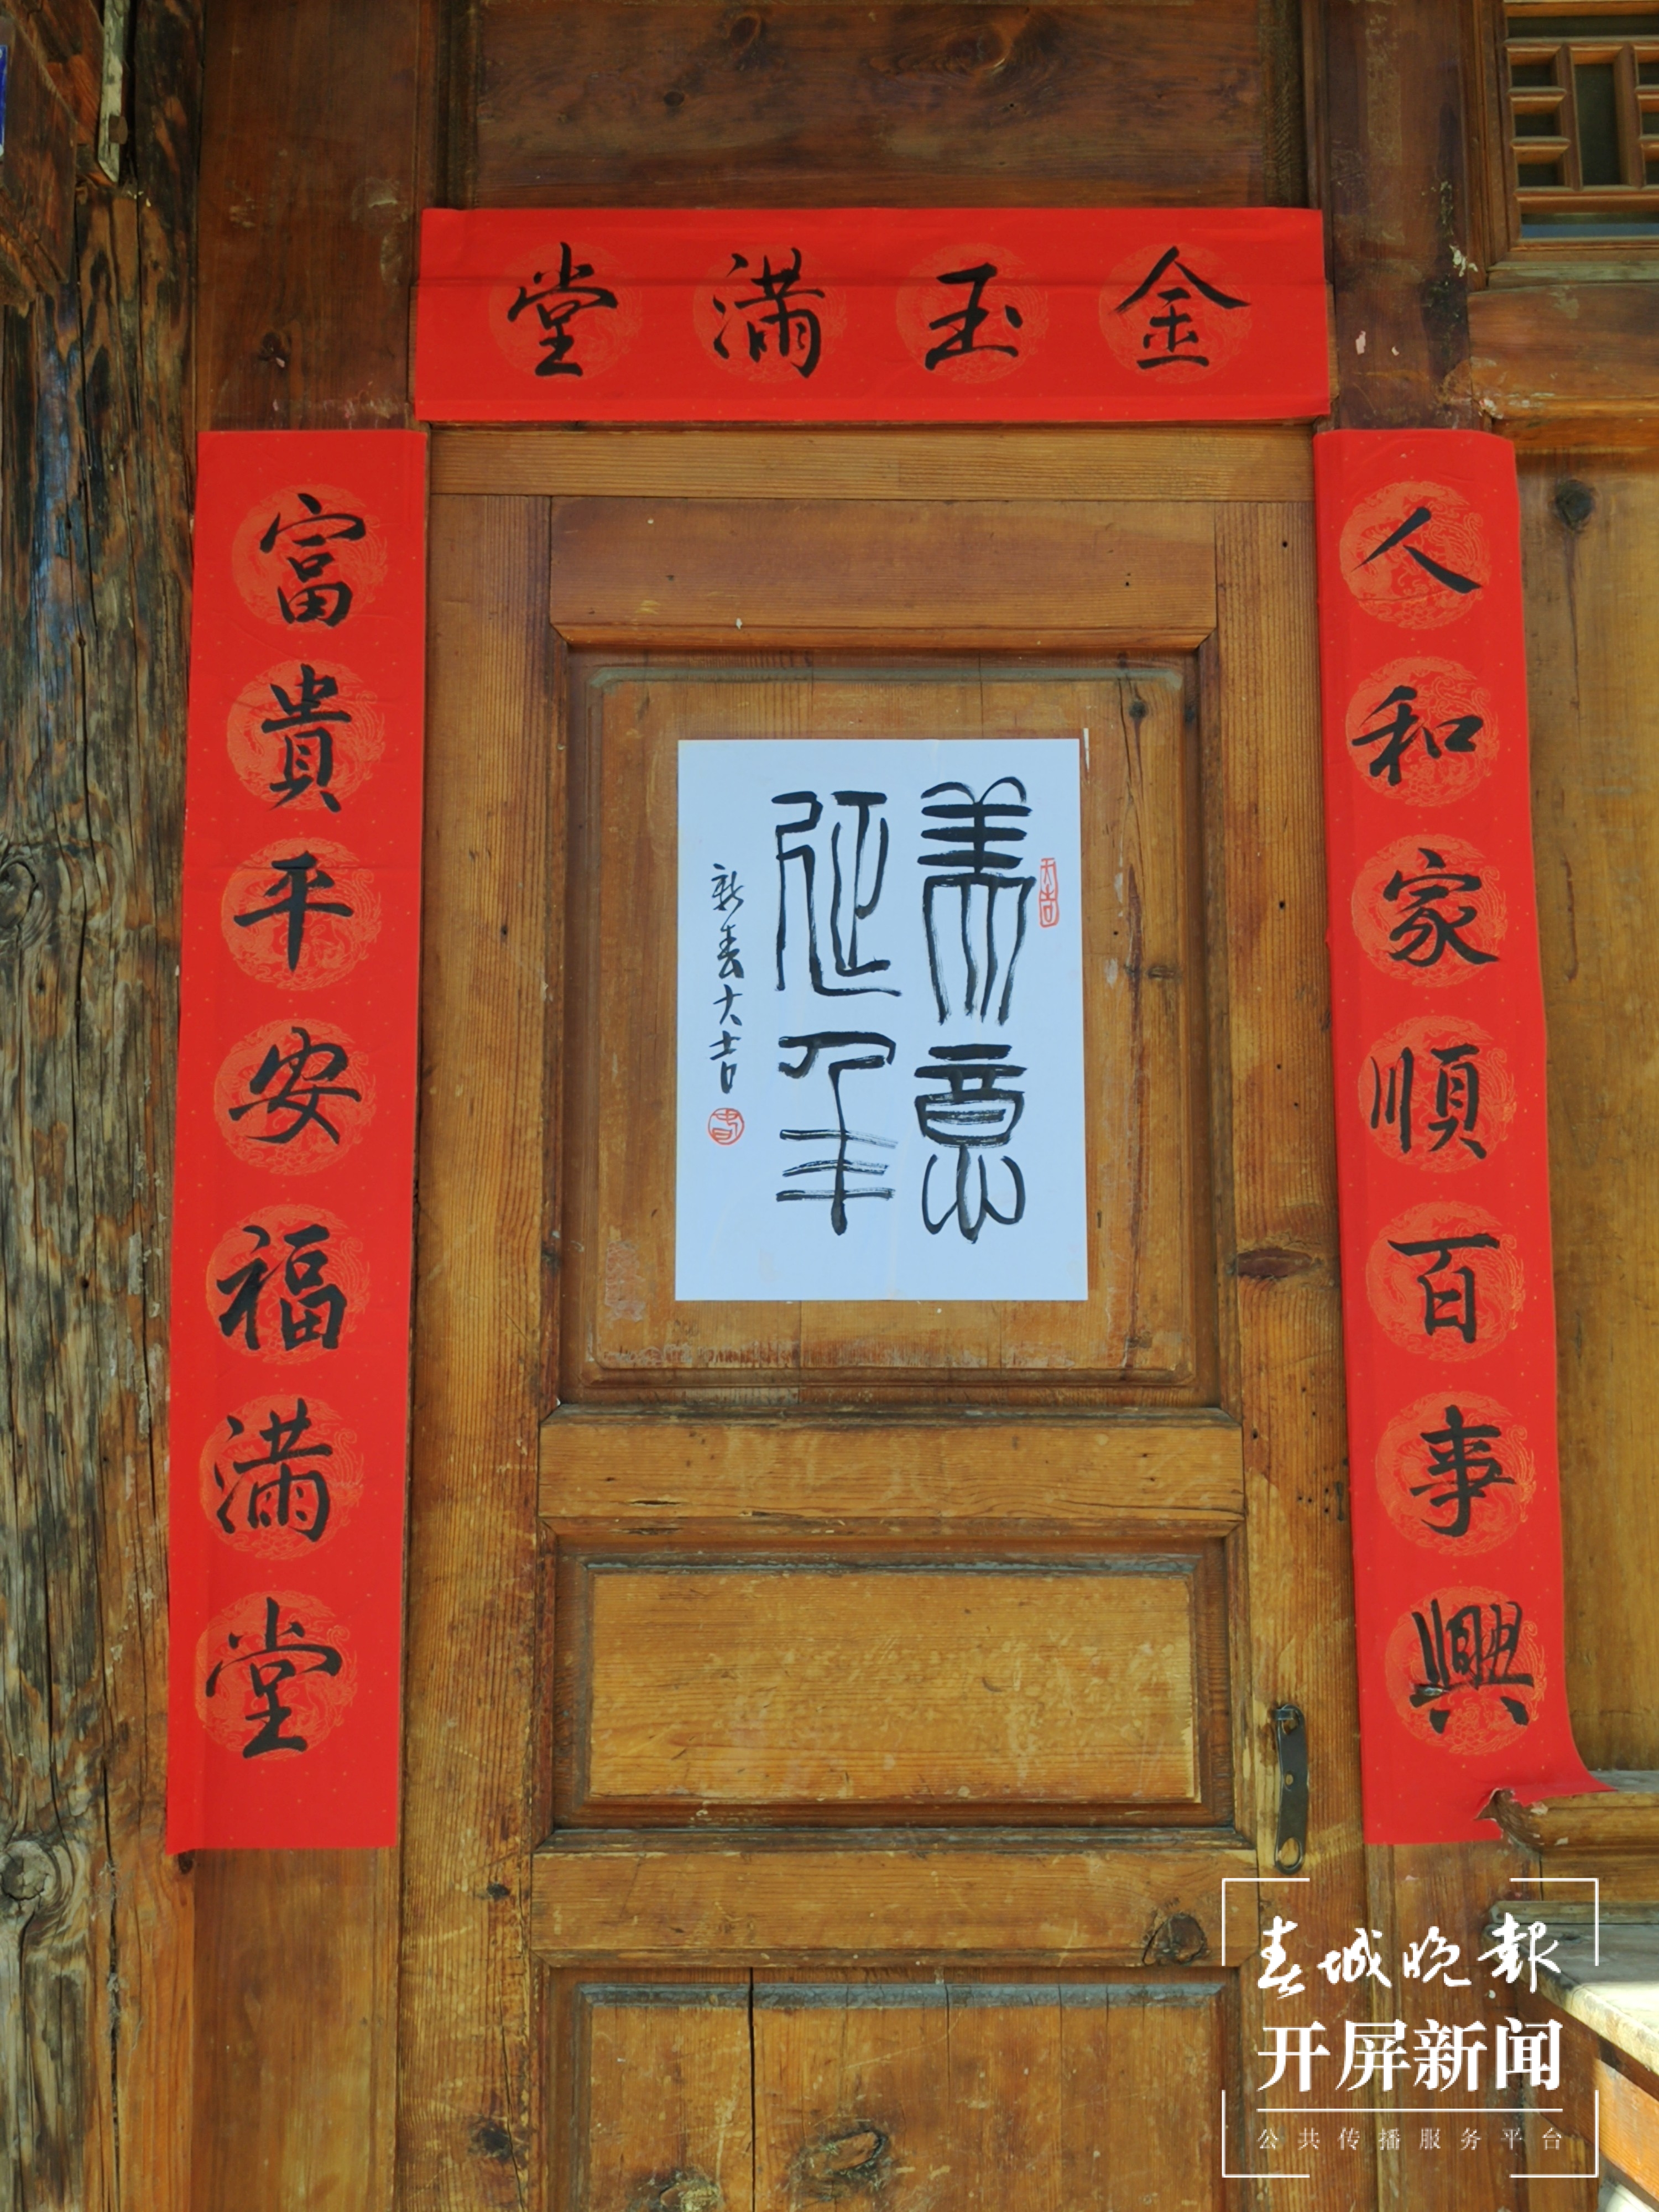 金玉满堂
人和家順百事興
富貴平安福满堂
美意
延年
新春大吉
春城晚報
开屏新闻
公共传播服务平台